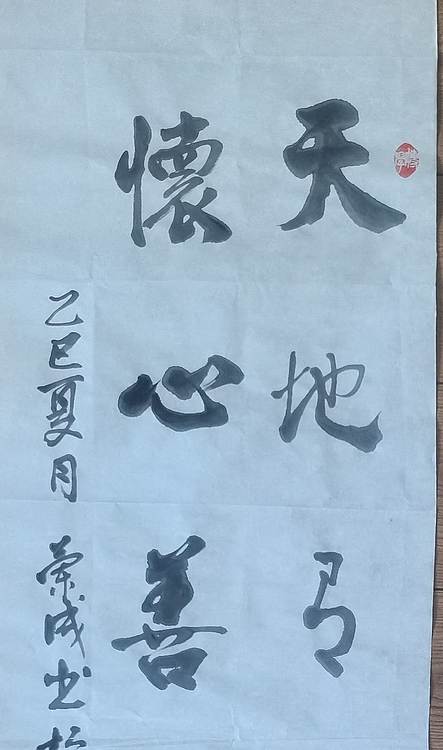 天地
懷心善
乙巳夏月 荣成书